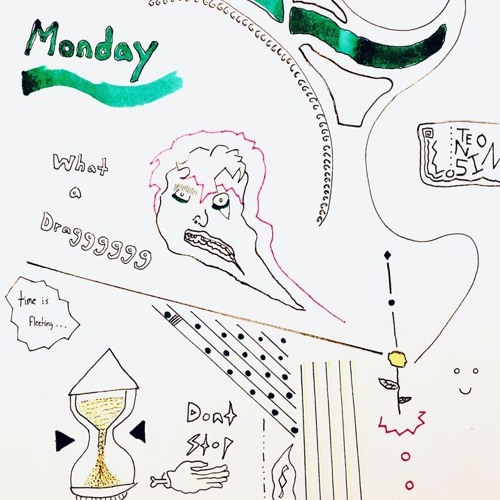 Monday
What
a
Dragggggg
time is
fleeting...
Dont
Stop